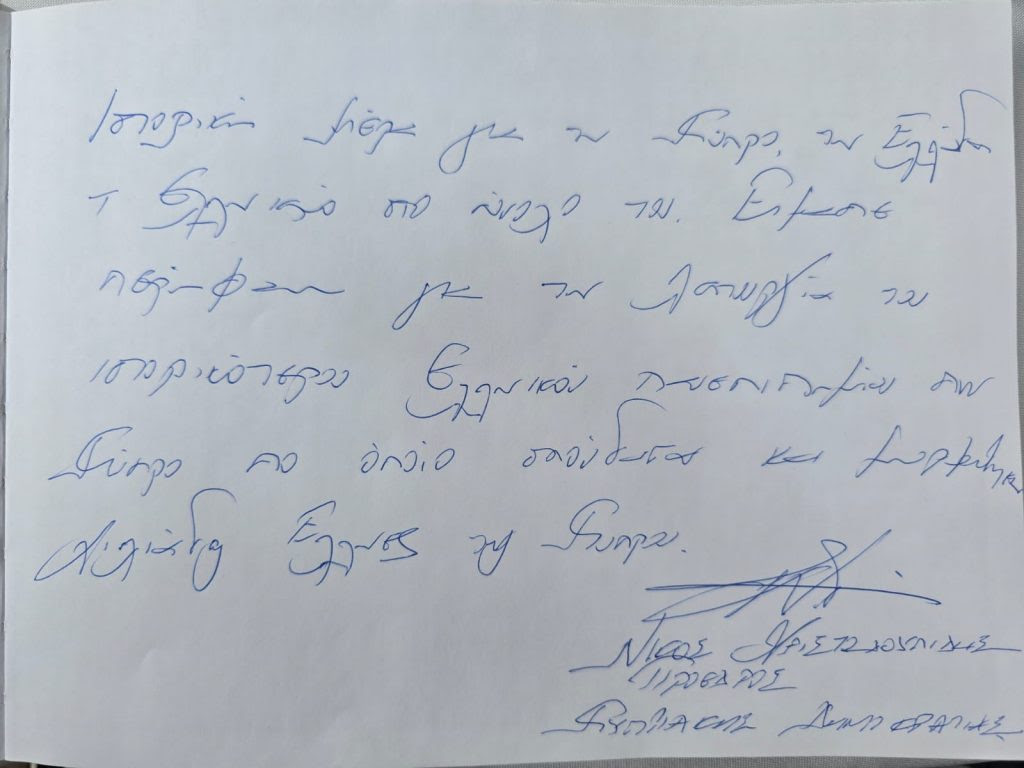 Ιστορική μέρα για την Κύπρο, την Ελλάδα
τ Ελληνισμό στο σύνολο του. Είμαστε
περήφανοι για την λειτουργία του
ιστορικότερου Ελληνικού πανεπιστημίου στην
Κύπρο στο όποίο σπούδασαν και μορφώθηκαν
χιλιάδες Έλληνες της Κύπρου.
ΝΙΚΟΣ ΧΡΙΣΤΟΔΟΥΛΙΔΗΣ
ΠΡΟΕΔΡΟΣ
ΚΥΠΡΙΑΚΗΣ ΔΗΜΟΚΡΑΤΙΑΣ